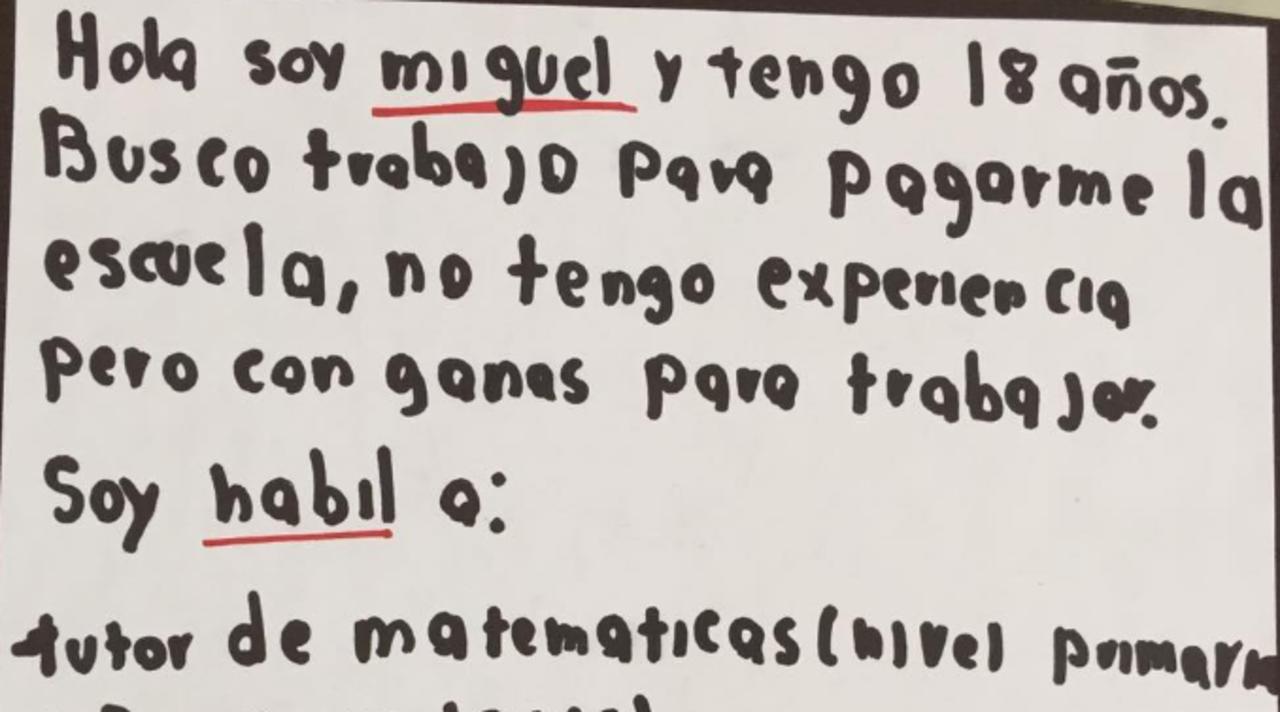 Hola soy miguel y tengo 18 años.
Busco trabajo para pagarme la
escuela, no tengo experiencia
pero con ganas para trabajar.
Soy habil a:
tutor de matematicas (nivel